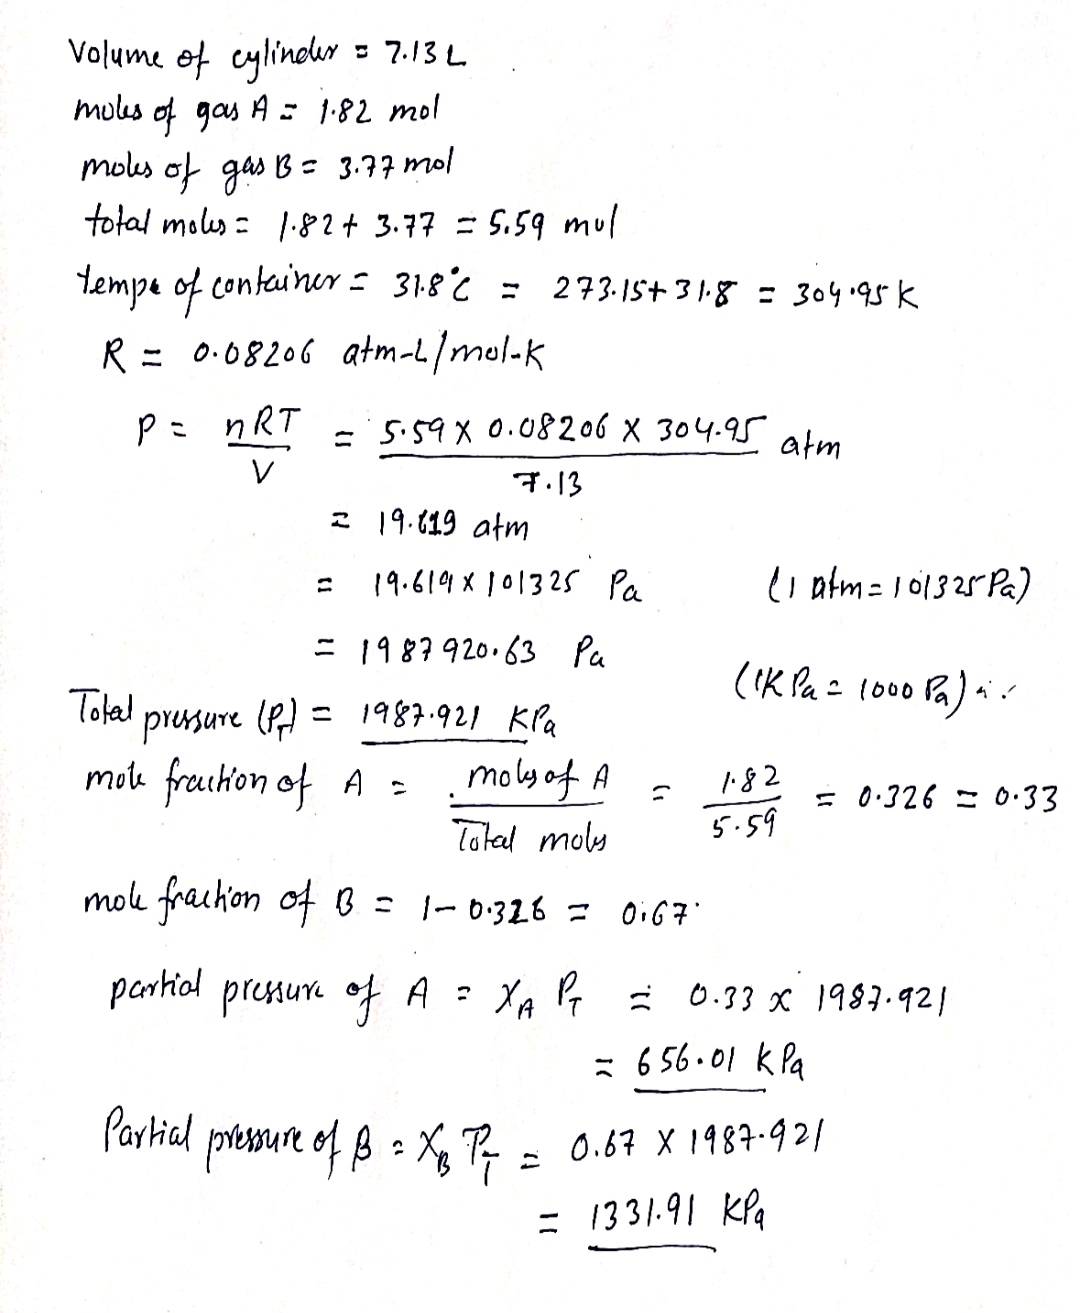 Volume of cylinder = 7.13 L
moles of gas A = 1.82 mol
moles of gas B = 3.77 mol
total moles = 1.82 + 3.77 = 5.59 mol
tempe of container = 31.8°C = 273.15 + 31.8 = 304.95 K
R = 0.08206 atm-L/mol-K
P = nRT/V = 5.59 X 0.08206 X 304.95 / 7.13 atm
= 19.619 atm
= 19.619 X 101325 Pa (1 atm = 101325 Pa)
= 1987920.63 Pa
(1K Pa = 1000 Pa)
Total pressure (P_T) = 1987.921 KPa
mole fraction of A = moles of A / Total moles = 1.82 / 5.59 = 0.326 = 0.33
mole fraction of B = 1 - 0.326 = 0.67
partial pressure of A = X_A P_T = 0.33 x 1987.921
= 656.01 kPa
Partial pressure of B = X_B P_T = 0.67 X 1987.921
= 1331.91 KPa